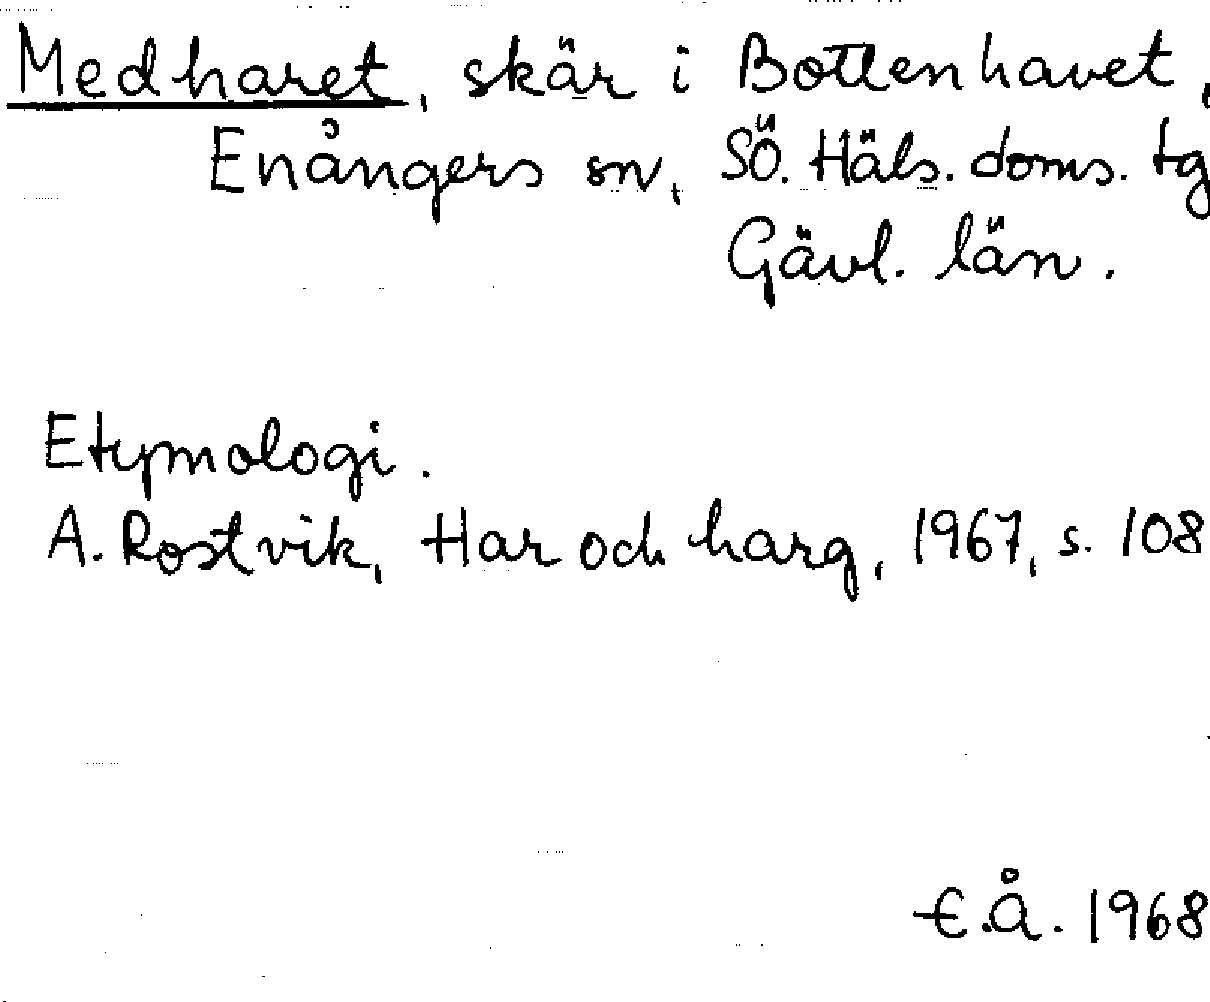 Medharet, skär i Bottenhavet,
Enångers sn, SÖ. Häls. doms. tg
Gävl. län.
Etymologi.
A. Rostvik, Har och harg, 1967, s. 108
E.Å. 1968